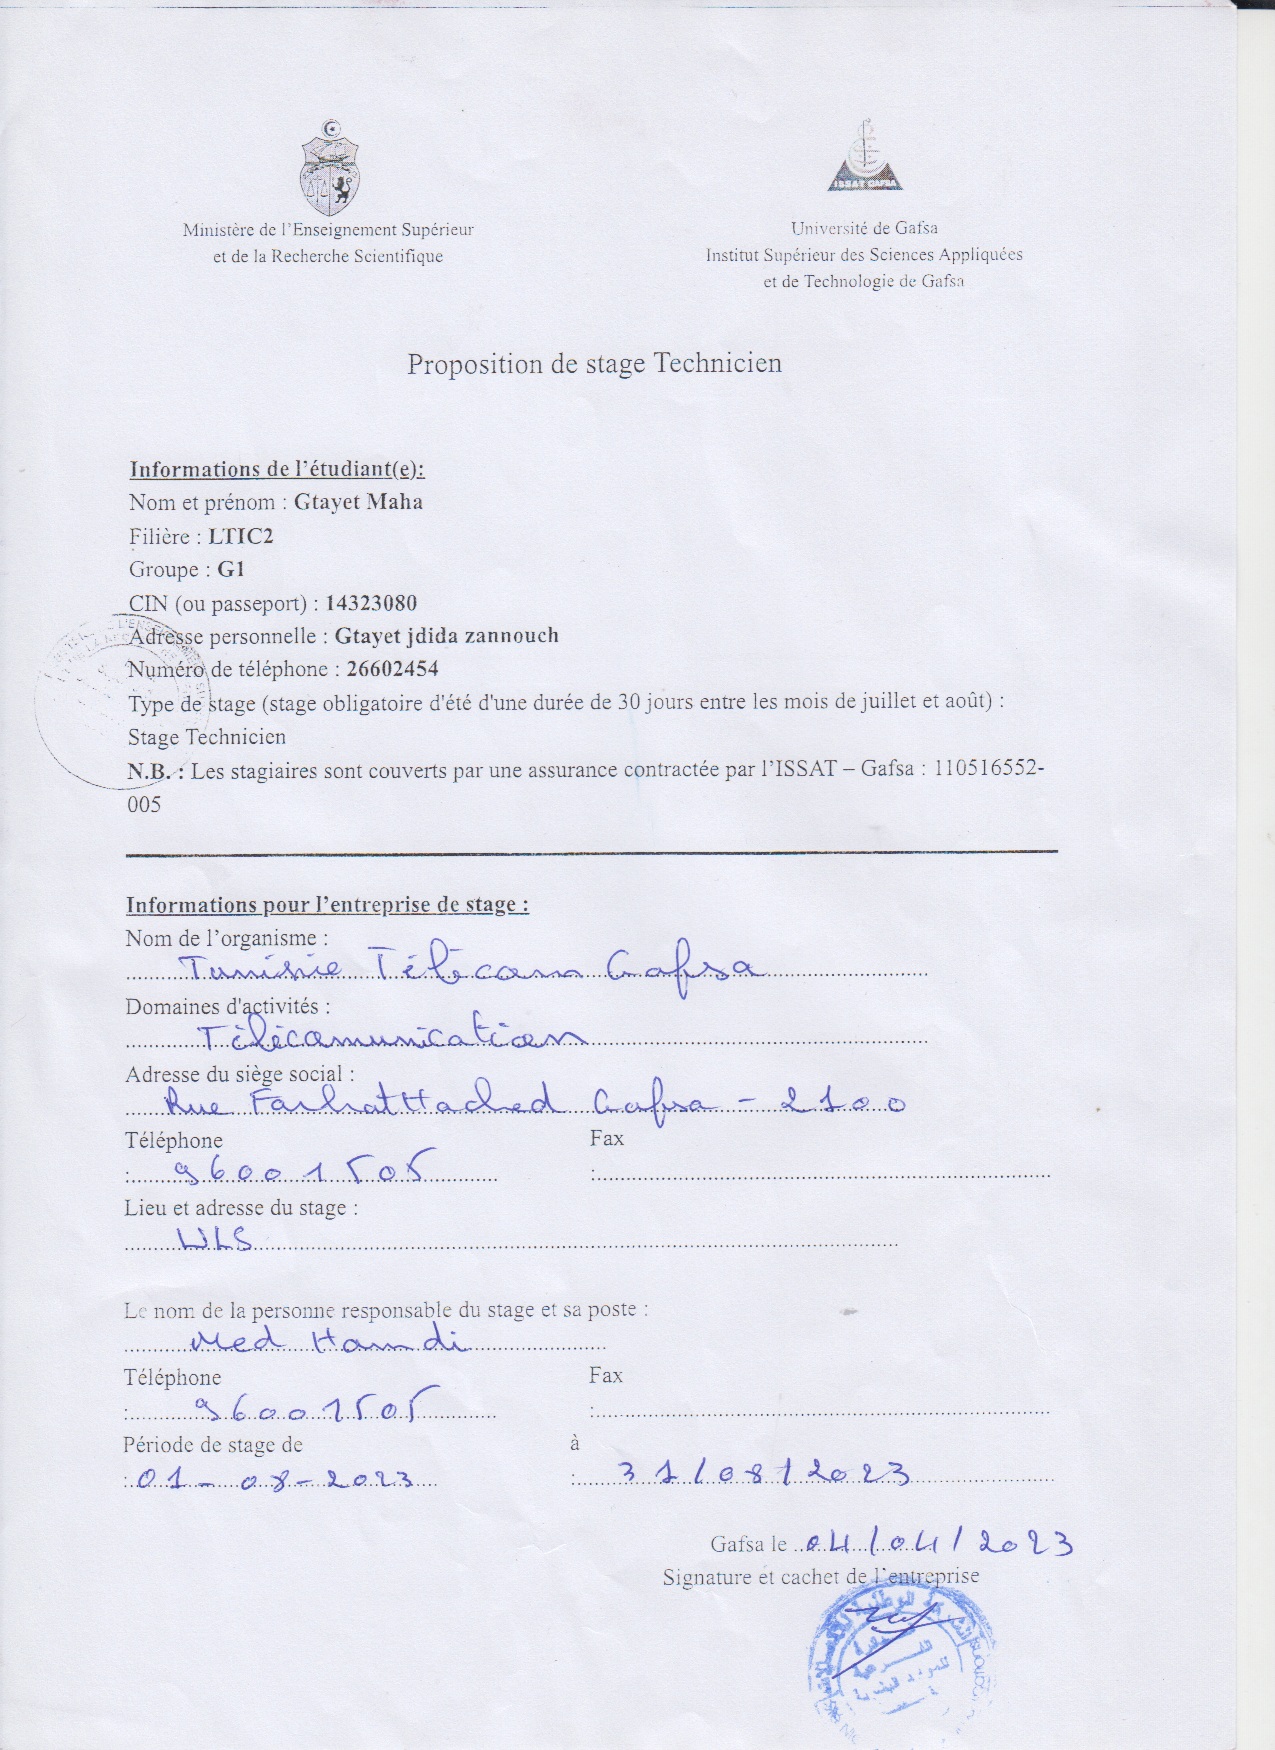 ISSAT GAFSA
Ministère de l'Enseignement Supérieur
et de la Recherche Scientifique
Université de Gafsa
Institut Supérieur des Sciences Appliquées
et de Technologie de Gafsa
Proposition de stage Technicien
Informations de l'étudiant(e):
Nom et prénom : Gtayet Maha
Filière : LTIC2
Groupe : G1
CIN (ou passeport) : 14323080
Adresse personnelle : Gtayet jdida zannouch
Numéro de téléphone : 26602454
Type de stage (stage obligatoire d'été d'une durée de 30 jours entre les mois de juillet et août) :
Stage Technicien
N.B. : Les stagiaires sont couverts par une assurance contractée par l'ISSAT – Gafsa : 110516552-
005
Informations pour l'entreprise de stage :
Nom de l'organisme :
Tunisie Télécom Gafsa
Domaines d'activités :
Télécomunication
Adresse du siège social :
Rue Farhat Hached Gafsa - 2100
Téléphone Fax
: 96001505 :
Lieu et adresse du stage :
ULS
Le nom de la personne responsable du stage et sa poste :
Med Hamdi
Téléphone Fax
: 96001505 :
Période de stage de à
: 01-08-2023 : 31/08/2023
Gafsa le 04/04/2023
Signature et cachet de l'entreprise